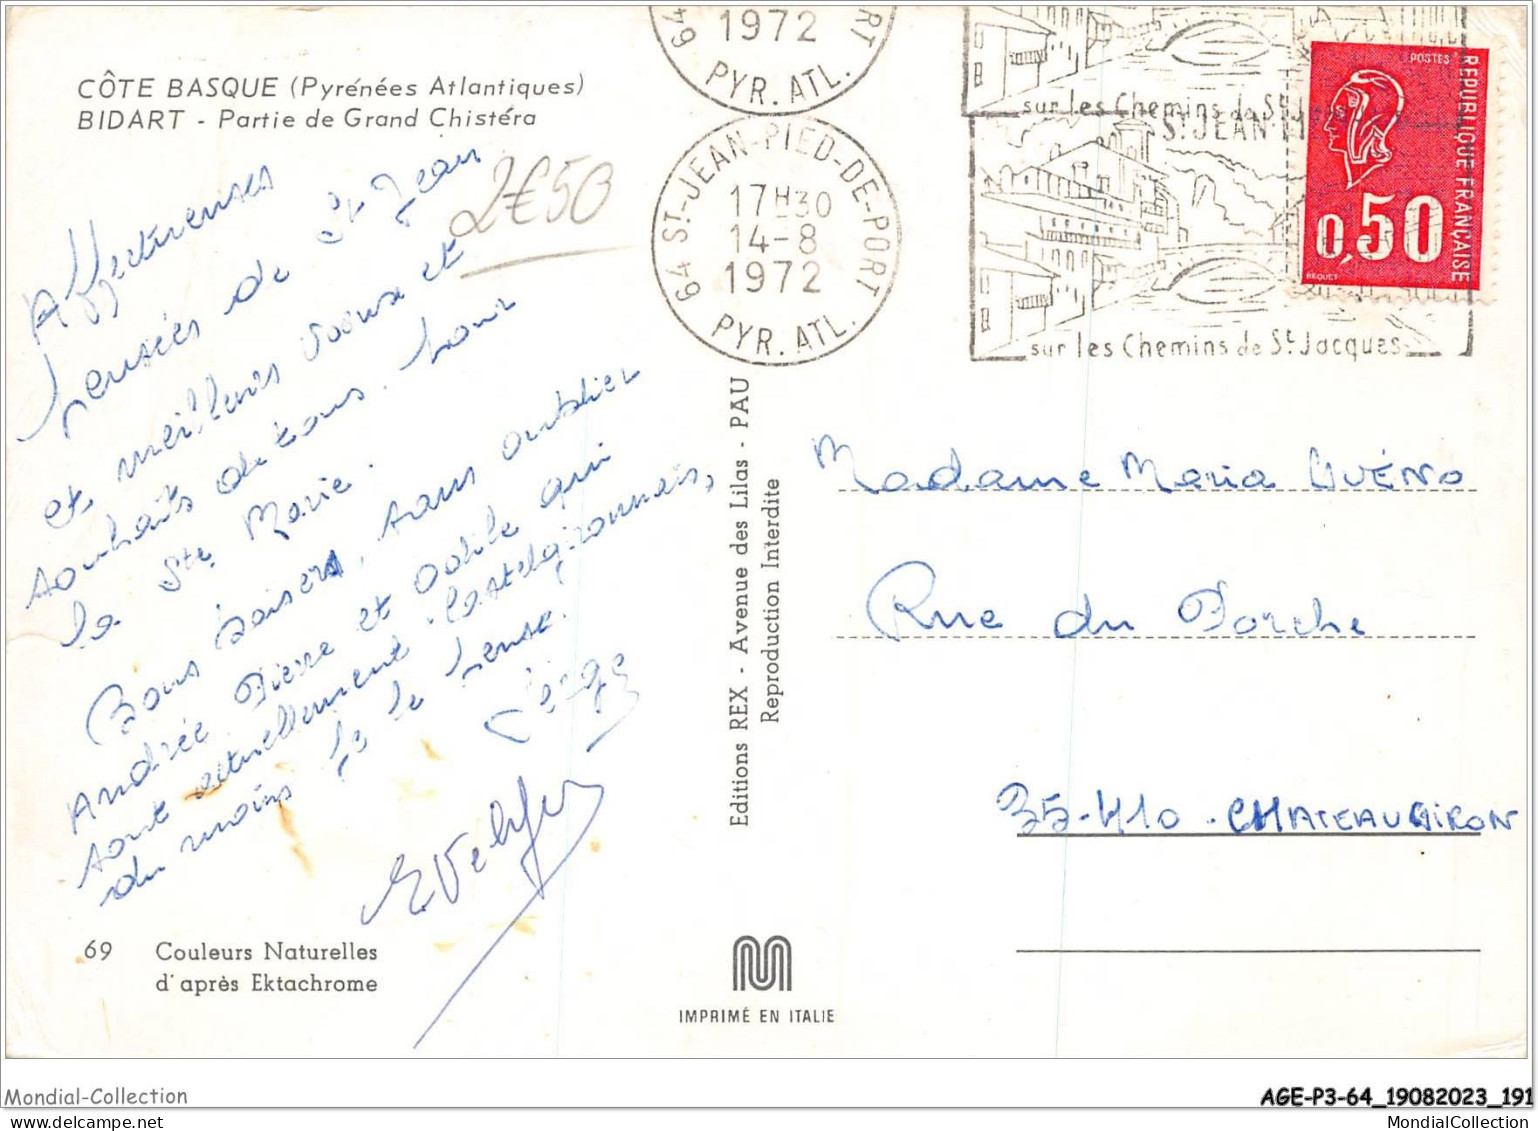 CÔTE BASQUE (Pyrénées Atlantiques)
BIDART - Partie de Grand Chistéra
2€50
Affectueuses
pensées de St Jean
et meilleurs voeux et
souhaits de tous. pour
la Ste Marie.
Bons baisers, sans oublier
Andrée Pierre et Odile qui
sont actuellement Castelgironnais,
du moins je le pense.
69 Couleurs Naturelles
d'après Ektachrome
Editions REX - Avenue des Lilas - PAU
Reproduction Interdite
IMPRIMÉ EN ITALIE
64 RT
1972
PYR. ATL.
64 ST-JEAN-PIED-DE-PORT
17H30
14-8
1972
PYR. ATL.
sur les Chemins de St
ST JEAN
sur les Chemins de St Jacques
POSTES
REPUBLIQUE FRANÇAISE
0,50
BEQUET
Madame Maria GUÉNO
Rue du Porche
35-410 - CHATEAUGIRON
Mondial-Collection
AGE-P3-64_19082023_191
MondialCollection.com